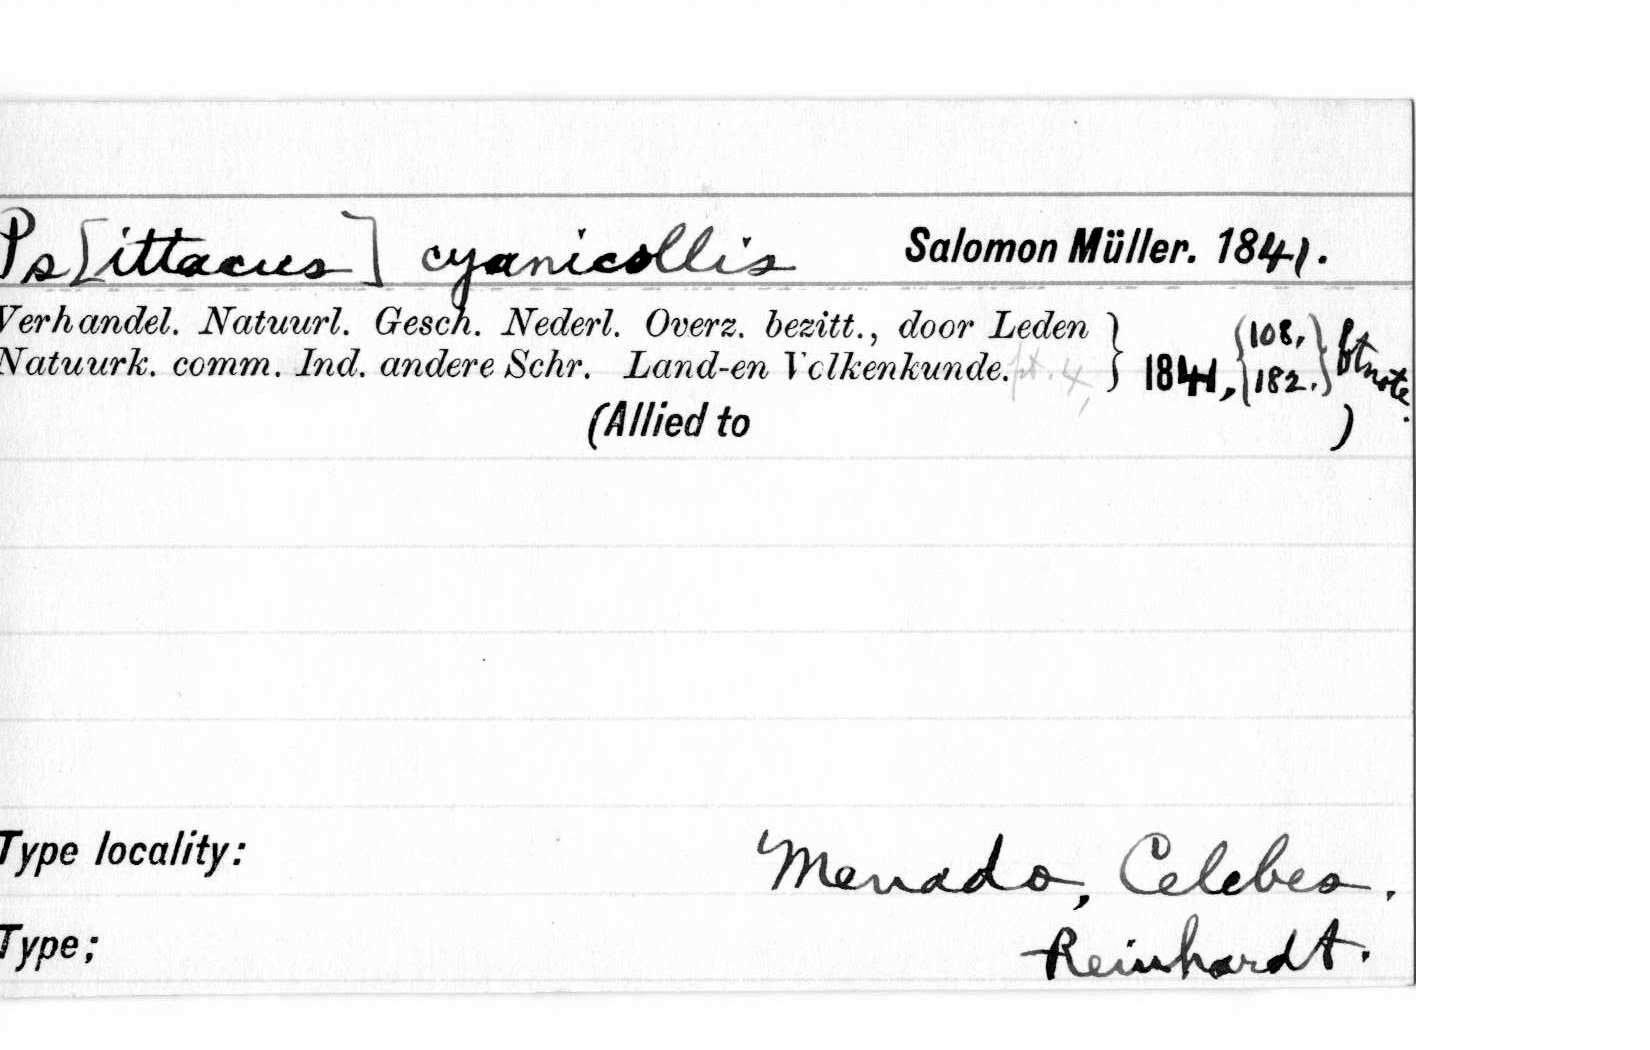 Ps[ittacus] cyanicollis Salomon Müller. 1841.
Verhandel. Natuurl. Gesch. Nederl. Overz. bezitt., door Leden } 1841, {108, 182.} ftnote.
Natuurk. comm. Ind. andere Schr. Land-en Volkenkunde. pt. 4,
(Allied to )
Type locality: Menado, Celebes.
Type; Reinhardt.